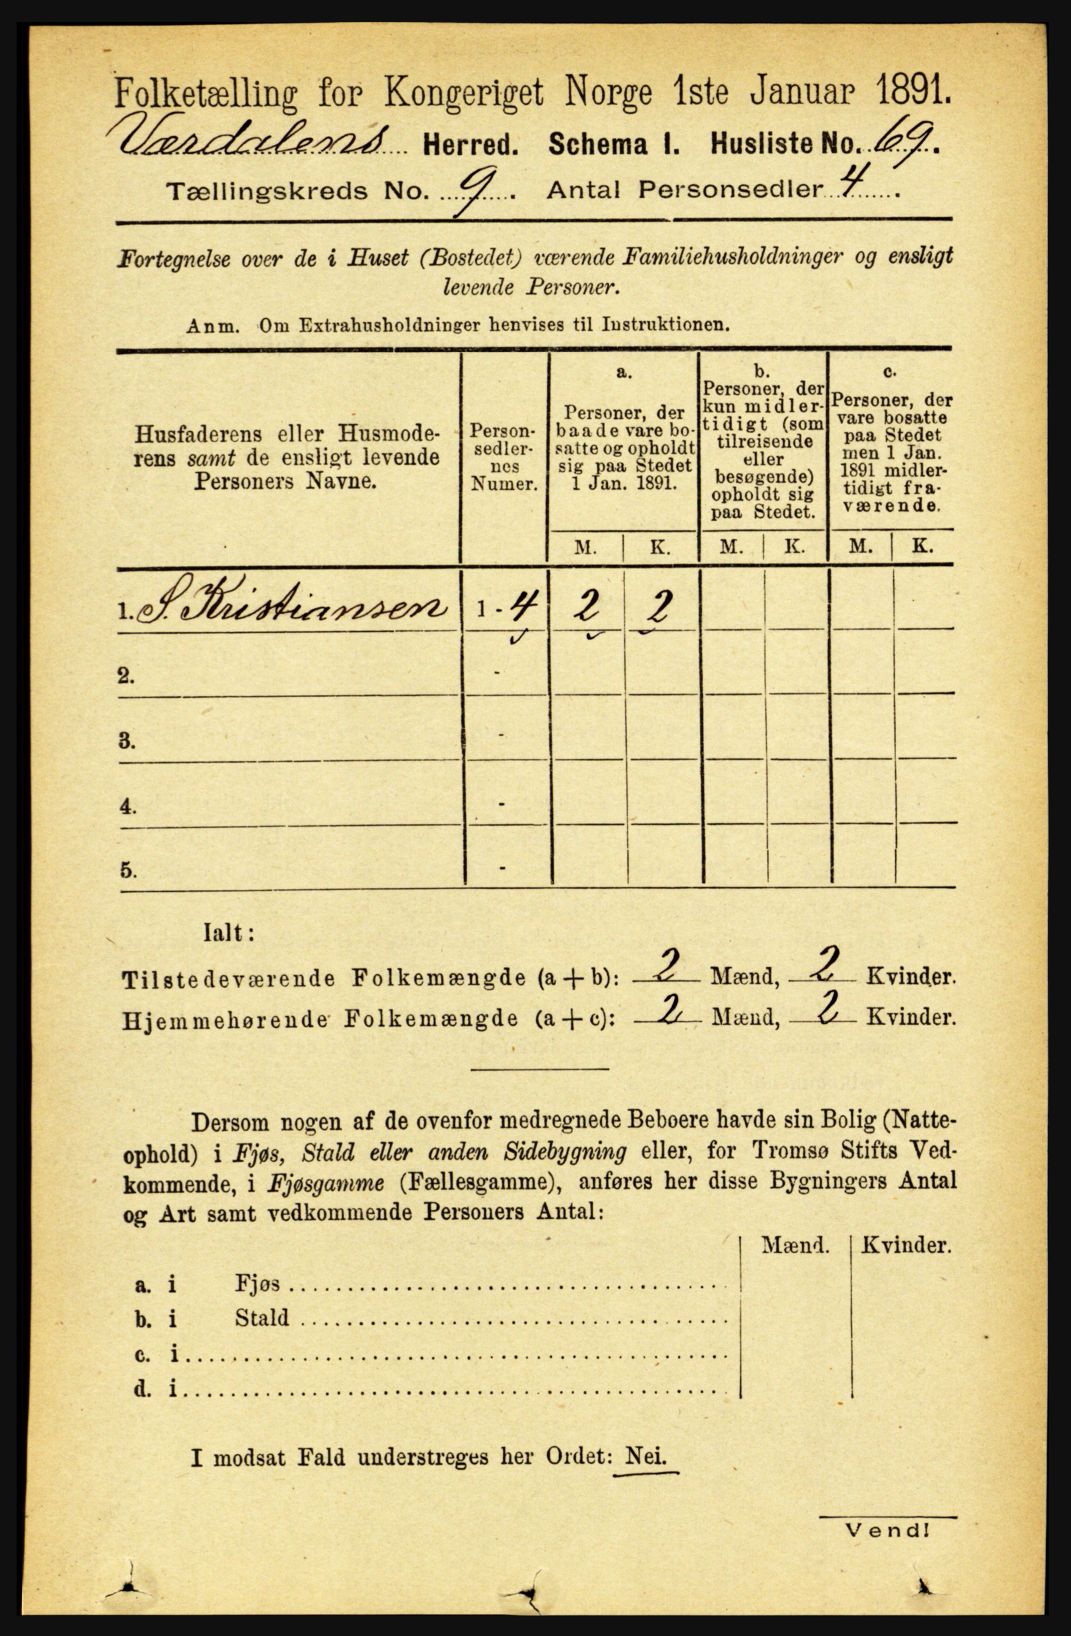 Folketælling for Kongeriget Norge 1ste Januar 1891.
Værdalens Herred. Schema I. Husliste No. 69.
Tællingskreds No. 9. Antal Personsedler 4.
Fortegnelse over de i Huset (Bostedet) værende Familiehusholdninger og ensligt
levende Personer.
Anm. Om Extrahusholdninger henvises til Instruktionen.
Husfaderens eller Husmode-
rens samt de ensligt levende
Personers Navne.
Person-
sedler-
nes
Numer.
a.
Personer, der
baade vare bo-
satte og opholdt
sig paa Stedet
1 Jan. 1891.
b.
Personer, der
kun midler-
tidigt (som
tilreisende
eller
besøgende)
opholdt sig
paa Stedet.
c.
Personer, der
vare bosatte
paa Stedet
men 1 Jan.
1891 midler-
tidigt fra-
værende.
M. K. M. K. M. K.
1. S. Kristiansen 1 - 4 2 2
2. -
3. -
4. -
5. -
Ialt:
Tilstedeværende Folkemængde (a + b): 2 Mænd, 2 Kvinder.
Hjemmehørende Folkemængde (a + c): 2 Mænd, 2 Kvinder.
Dersom nogen af de ovenfor medregnede Beboere havde sin Bolig (Natte-
ophold) i Fjøs, Stald eller anden Sidebygning eller, for Tromsø Stifts Ved-
kommende, i Fjøsgamme (Fællesgamme), anføres her disse Bygningers Antal
og Art samt vedkommende Personers Antal:
Mænd. Kvinder.
a. i Fjøs
b. i Stald
c. i
d. i
I modsat Fald understreges her Ordet: Nei.
Vend!